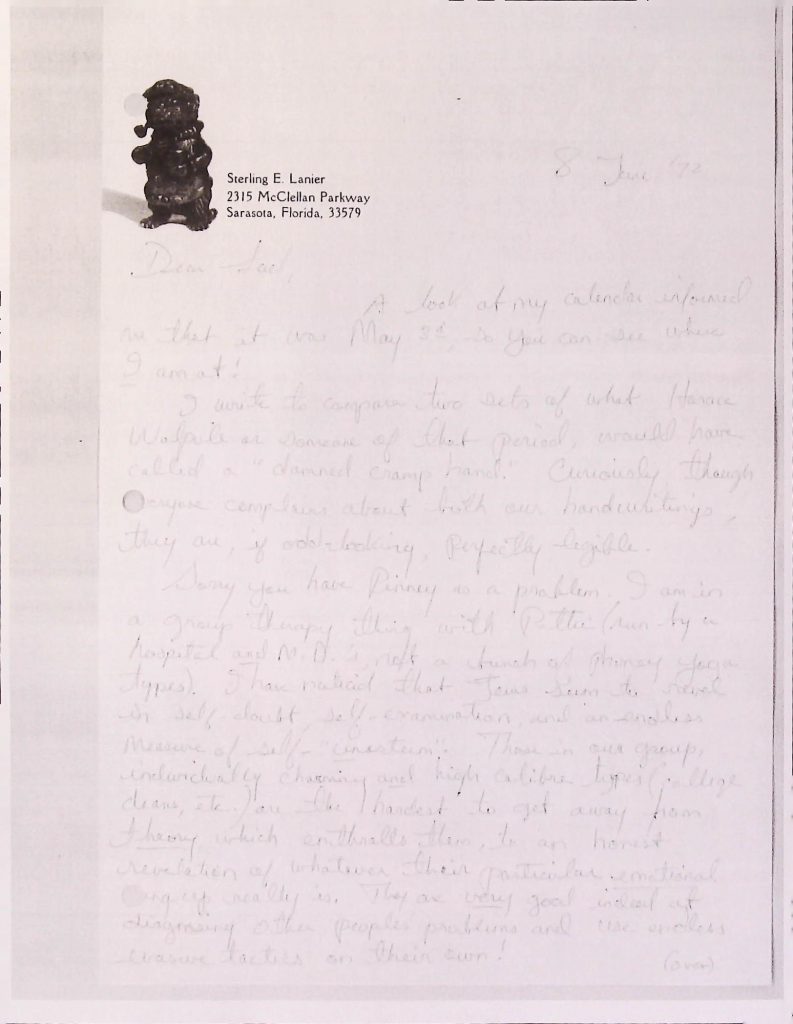 Sterling E. Lanier
2315 McClellan Parkway
Sarasota, Florida, 33579
8 '72
Dear
A look at my calendar informed
me that it was May 3rd, so you can see where
I am at!
I write to compare two sets of what Horace
Walpole or someone of that period, would have
called a "damned cramp hand." Curiously though
everyone complains about both our handwritings,
they are, if odd-looking, perfectly legible.
Sorry you have as a problem. I am in
a group therapy thing with (run by a
hospital and M.D.'s, not a bunch of phoney yoga
types). I have noticed that Jews seem to revel
in self-doubt, self-examination, and an endless
measure of self-
Those in our group,
individually charming and high calibre types (college
deans, etc.) are the hardest to get away from
theory which enthralls them, to an honest
revelation of whatever their particular emotional
really is. They are very good indeed at
diagnosing other peoples' problems and use endless
evasive tactics on their own!
(over)